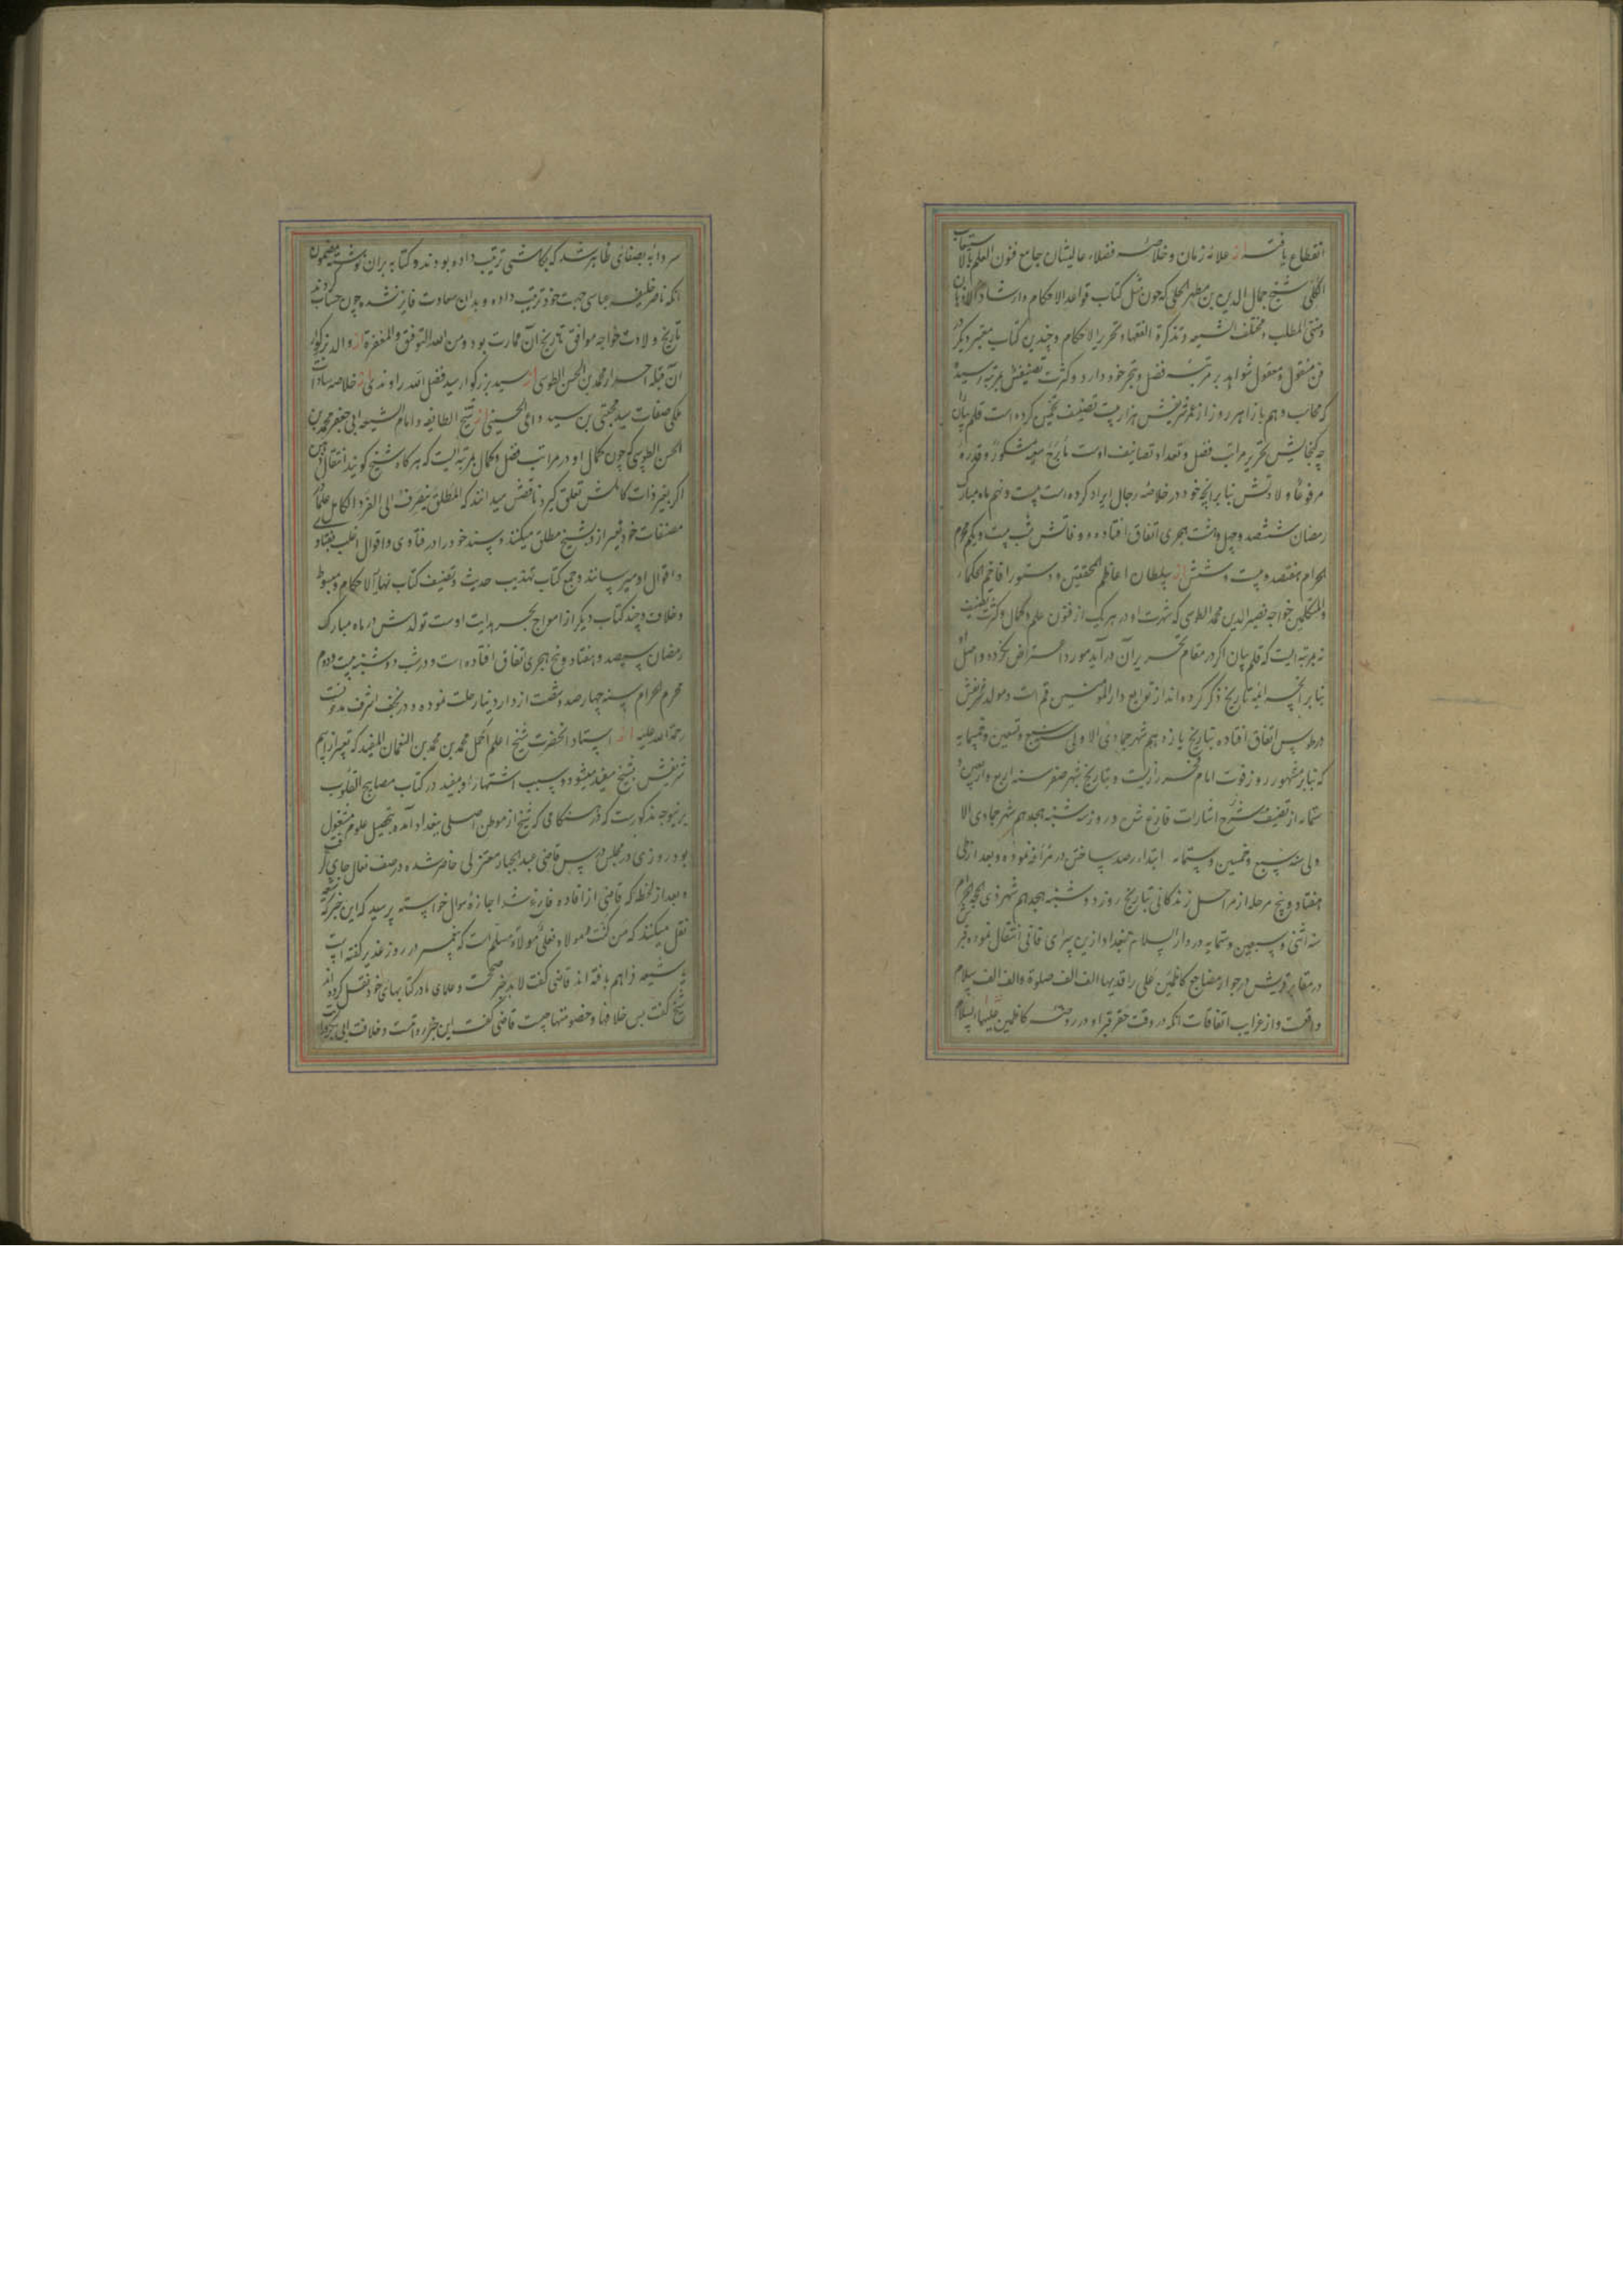 انقطاع یافت از علامهٔ زمان و خلاصهٔ فضلاء عالیشان جامع فنون العلم بالاستیعاب
الکلی شیخ جمال الدین بن مطهر الحلی که چون مثل کتاب قواعد الاحکام و ارشاد الاذهان
و منتهی المطلب و مختلف الشیعه و تذکرة الفقهاء و تحریر الاحکام و چندین کتاب معتبر دیگر در
فن منقول و معقول شواهد بر مرتبهٔ فضل و تبحر خود دارد و کثرت تصنیفش بمرتبه رسیده
که محاسب وهم بازاء هر روز از عمر شریفش هزار بیت تصنیف تخمین کرده است قلم بیان را
چه گنجایش تحریر مراتب فضل و تعداد تصانیف اوست سعیه مشکورا و قدره
مرفوعا ولادتش بنا بر آنچه خود در خلاصه رجال ایراد کرده است بیست و نهم ماه مبارک
رمضان ششصد و چهل و هشت هجری اتفاق افتاده و وفاتش شب بیست و یکم محرم
الحرام هفتصد و بیست و شش از سلطان اعاظم المحققین و دستور افاخم الحکماء
والمتکلمین خواجه نصیرالدین محمد الطوسی که شهرت او در هر یک از فنون علم و کمال و کثرت تصنیف
نه بمرتبه ایست که قلم بیان اگر در مقام تحریر آن درآید مورد اعتراض نگردد و اصل او
بنا بر آنچه ائمه تاریخ ذکر کرده اند از توابع دار المؤمنین قم است و مولد شریفش
در طوس اتفاق افتاده بتاریخ یازدهم شهر جمادی الاولی سنه سبع و تسعین و خمسمایه
که بنا بر مشهور روز فوت امام فخر رازیست و بتاریخ شهر صفر سنه اربع و اربعین و
ستماء از تصنیف شرح اشارات فارغ شد در روز سه شنبه هجدهم شهر جمادی الا
ولی سنه سبع و خمسین و ستماء ابتداء رصد ساختن در مراغه نموده و بعد از طی
هفتاد و پنج مرحله از مراحل زندگانی بتاریخ روز دوشنبه هجدهم شهر ذی الحجة الحرام
سنه اثنی و سبعین و ستمایه در دار السلام بغداد ازین سرای فانی انتقال نموده قبرش
در مقابر قریش در جوار مضاجع کاظمین علی راقدیها الف الف صلوة و الف الف سلام
واقعست و از غرایب اتفاقات آنکه در وقت حفر قبر او در روضه کاظمین علیهما السلام
سردابه بصفای ظاهر شد که بکاشی ترتیب داده بودند و کتابه بران نوشته بمضمون
آنکه ناصر خلیفهٔ عباسی جهت خود ترتیب داده و بدان سعادت فایز نشده چون حساب کردند
تاریخ ولادت خواجه موافق تاریخ آن عمارت بود و من الله التوفیق و المغفرة از والد بزرگوار
آن قبله احرار محمد بن الحسن الطوسی از سید بزرگوار سید فضل الله راوندی از خلاصه سادات
ملکی صفات سید مجتبی بن سید داعی الحسینی از شیخ الطایفه و امام الشیعه ابی جعفر محمد بن
الحسن الطوسی که چون کمال او در مراتب فضل و کمال بمرتبه ایست که هرگاه شیخ گویند انتقال ذهن
اگر بغیر ذات کاملش تعلق گیرد ناقصش میدانند که المطلق ینصرف الی الفرد الکامل علما در
مصنفات خود تعبیر ازو بشیخ مطلق میکنند و سند خود را در فتاوی و اقوال اغلب بفتاوی
و اقوال او میرسانند و جمع کتاب تهذیب حدیث و تصنیف کتاب نهایة الاحکام و مبسوط
و خلاف و چند کتاب دیگر از امواج بحر هدایت اوست تولدش در ماه مبارک
رمضان سیصد و هفتاد و پنج هجری اتفاق افتاده است و در شب دوشنبه بیست و دوم
محرم الحرام سنه چهارصد و شصت از دار دنیا رحلت نموده و در نجف اشرف مدفونست
رحمة الله علیه از استاد آنحضرت شیخ اعلم اکمل محمد بن محمد بن النعمان المفید که تعبیر از اسم
شریفش بشیخ مفید میشود و سبب اشتهار او بمفید در کتاب مصابیح القلوب
برینوجه مذکورست که در هنگامی که شیخ از موطن اصلی ببغداد آمده بتحصیل علوم مشغول
بود روزی در مجلس درس قاضی عبد الجبار معتزلی حاضر شده در صف نعال جای گرفت
و بعد از لحظه که قاضی از افاده فارغ شد اجازهٔ سوال خواسته پرسید که این خبر که شیعه
نقل میکنند که من کنت مولاه فعلی مولاه مسلم است که پیغمبر در روز غدیر گفته است
یا شیعه فراهم بافته اند قاضی گفت لا بد خبر صحیحست و علمای ما در کتابهای خود نقل کرده اند
شیخ گفت پس خلافها و خصومتها چیست قاضی گفت این خبر روایتست و خلافت ابی بکر درایت